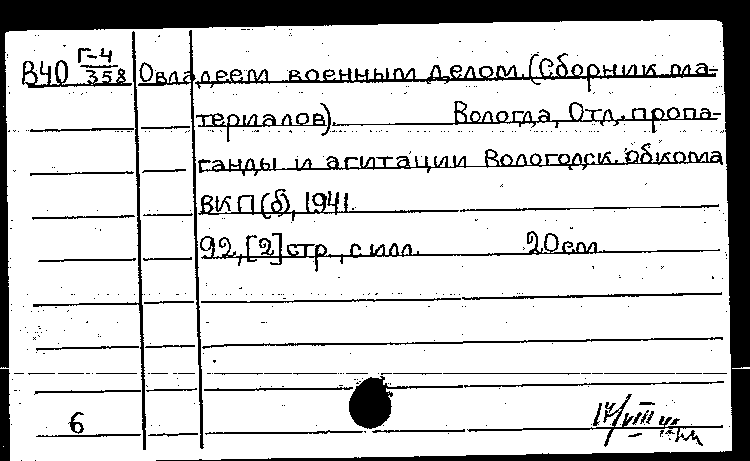 В40 Г-4/358 Овладеем военным делом. (Сборник ма-
териалов). Вологда, Отд. пропа-
ганды и агитации Вологодск. обкома
ВКП(б), 1941.
92, [2] стр., с илл. 20 см
6
17/VIII